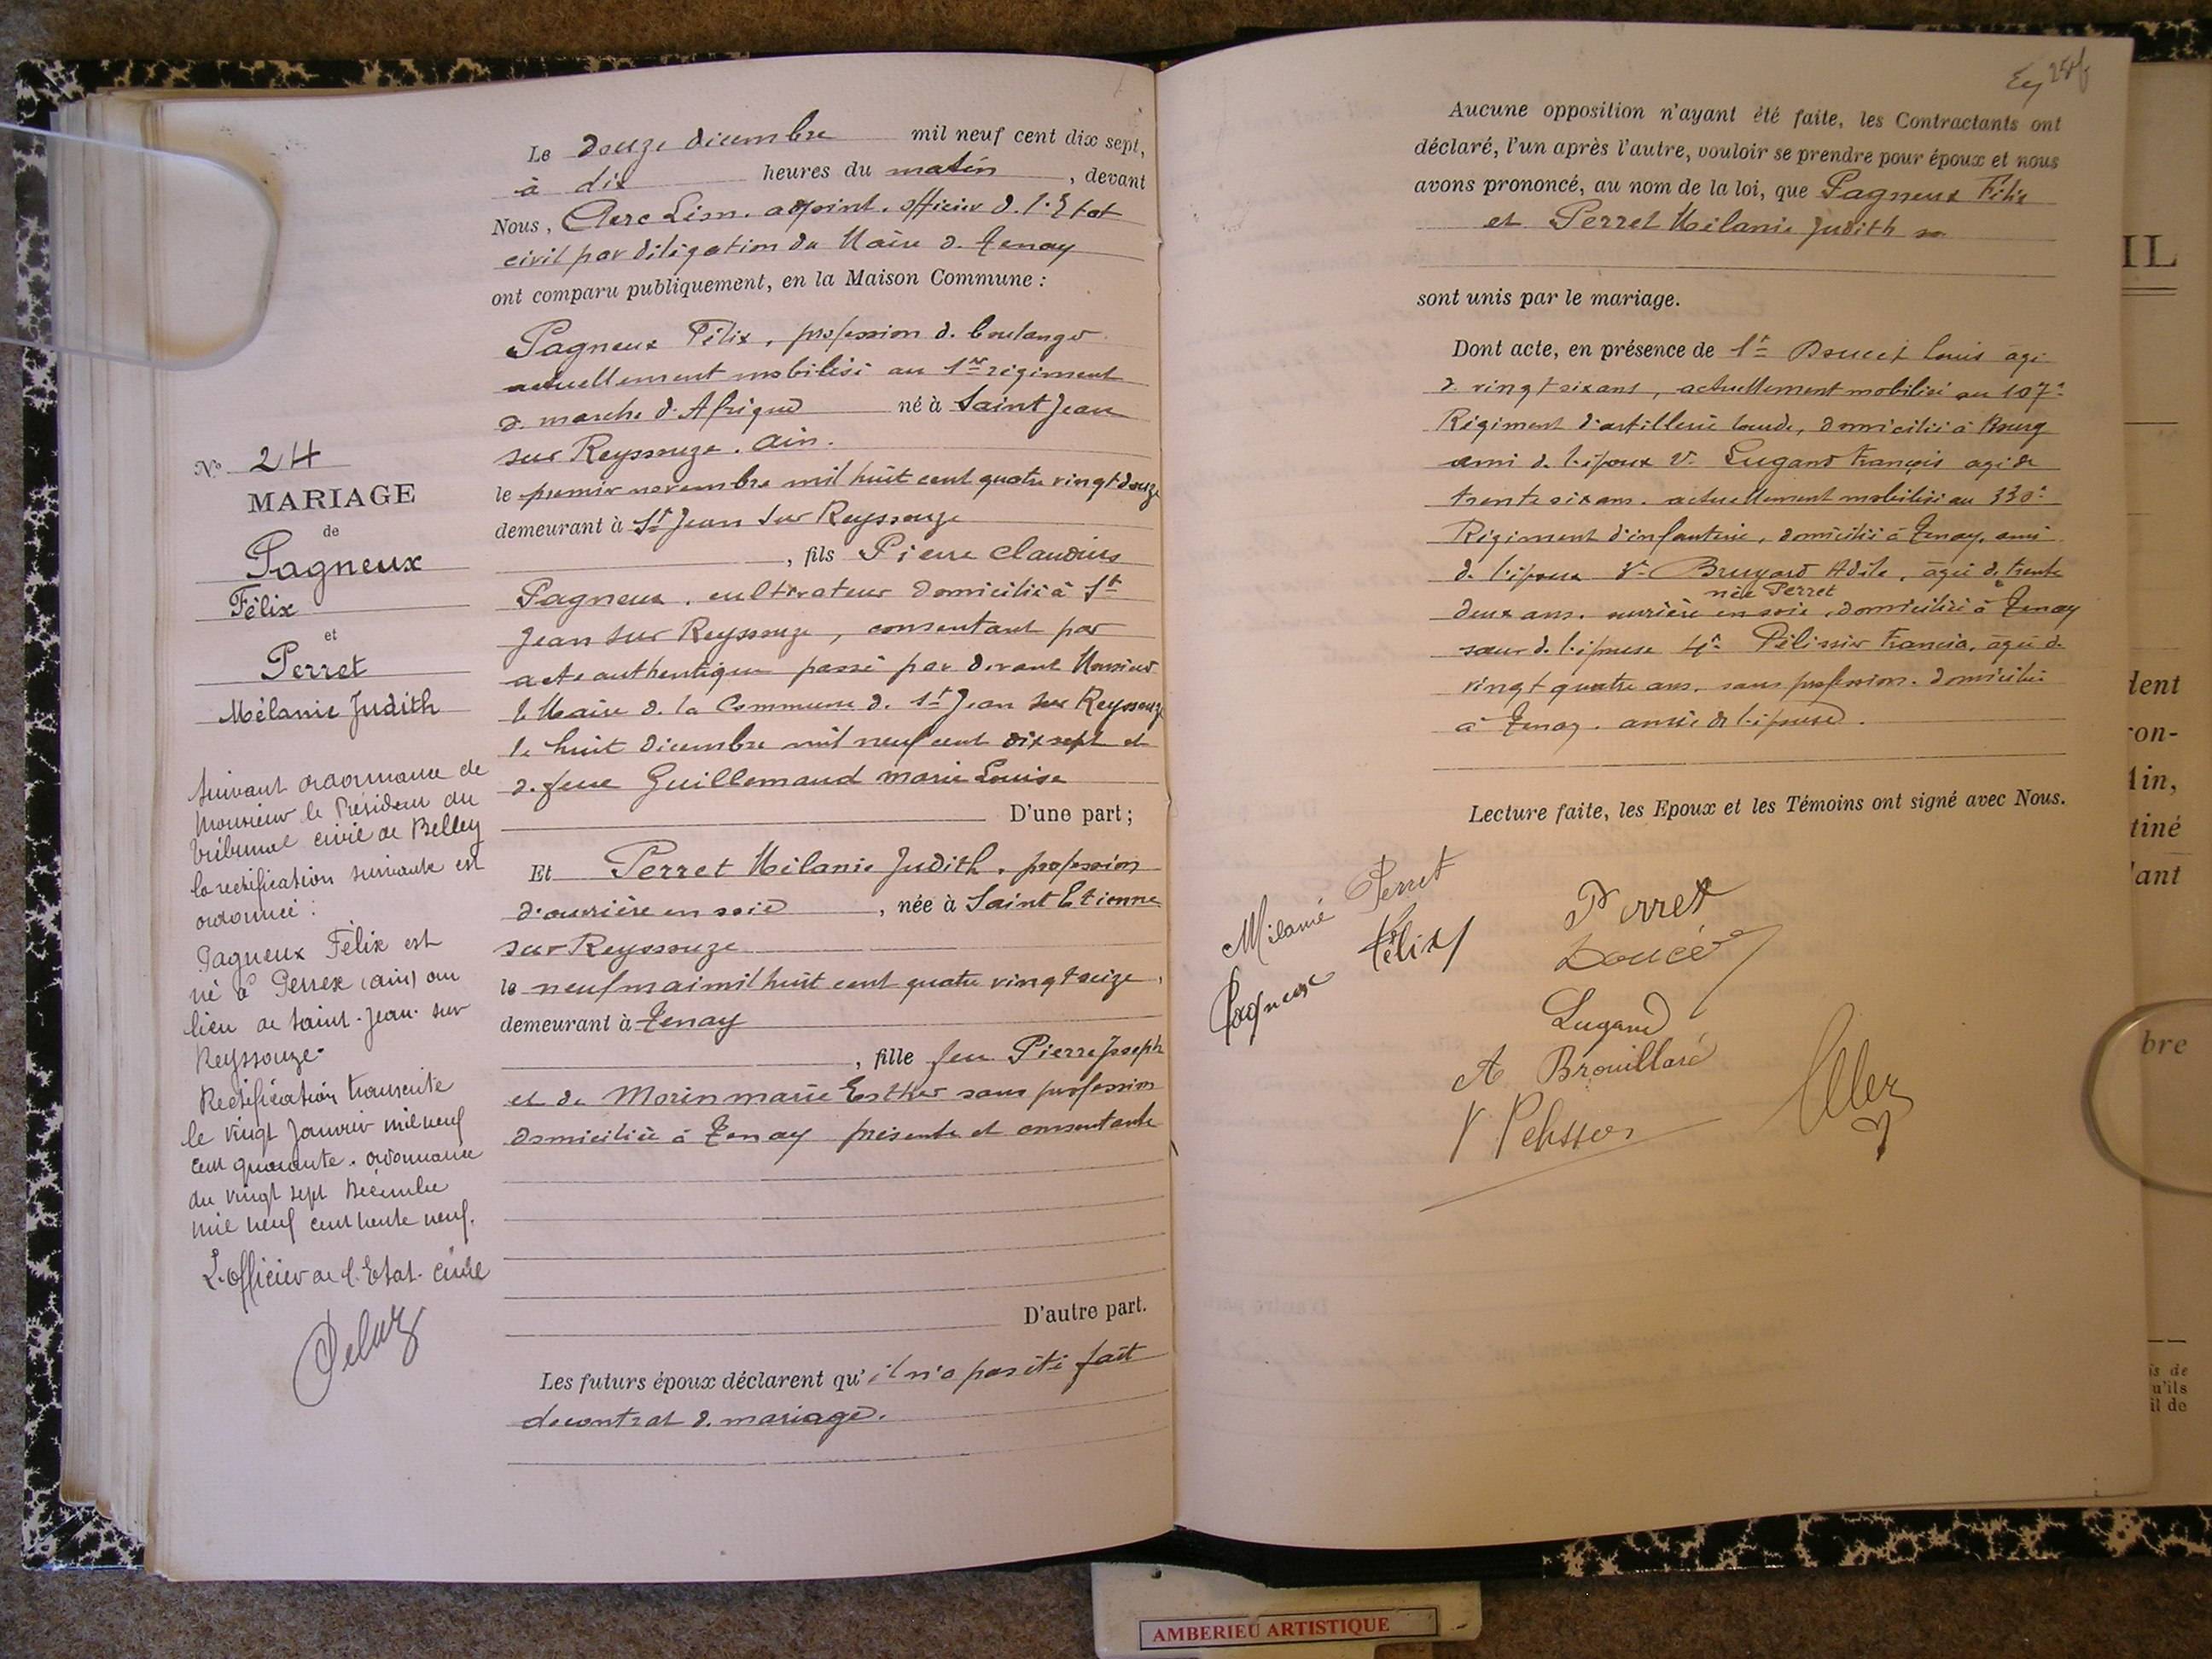 Le douze décembre mil neuf cent dix sept,
à dix heures du matin, devant
Nous, Clerc Léon. adjoint. officier d. l'Etat
civil par délégation du Maire d. Tenay
ont comparu publiquement, en la Maison Commune :
Pagneux Félix, profession d. boulanger
actuellement mobilisé au 1er régiment
d. marche d'Afrique né à Saint Jean
sur Reyssouze. Ain.
le premier novembre mil huit cent quatre vingt douze
demeurant à St Jean sur Reyssouze
, fils Pierre Claudius
Pagneux. cultivateur domicilié à St
Jean sur Reyssouze, consentant par
acte authentique passé par devant Monsieur
le Maire d. la Commune d. St Jean sur Reyssouze
le huit décembre mil neuf cent dix sept et
d. feue Guillemaud marie Louise
D'une part ;
Et Perret Mélanie Judith. profession
d'ouvrière en soie, née à Saint Etienne
sur Reyssouze
le neuf mai mil huit cent quatre vingt seize,
demeurant à Tenay
, fille feu Pierre Joseph
et de Morin marie Esther sans profession
domiciliée à Tenay présente et consentante
D'autre part.
Les futurs époux déclarent qu'il n'a pas été fait
de contrat d. mariage.
No 24
MARIAGE
de
Pagneux
Félix
et
Perret
Mélanie Judith
Suivant ordonnance de
Monsieur le Président du
tribunal civil de Belley
la rectification suivante est
ordonnée :
Pagneux Félix est
né à Perrex (ain) au
lieu de Saint-Jean-sur
Reyssouze.
Rectification transcrite
le vingt Janvier mil neuf
cent quarante. ordonnance
du vingt sept Décembre
mil neuf cent trente neuf.
L'officier de l'Etat-civil
Aucune opposition n'ayant été faite, les Contractants ont
déclaré, l'un après l'autre, vouloir se prendre pour époux et nous
avons prononcé, au nom de la loi, que Pagneux Félix
et Perret Mélanie Judith
sont unis par le mariage.
Dont acte, en présence de 1° Doucet Louis âgé
d. vingt six ans, actuellement mobilisé au 107e
Régiment d'artillerie lourde, domicilié à Bourg
ami d. l'époux 2° Lugand François agé de
trente six ans. actuellement mobilisé au 330e
Régiment d'infanterie, domicilié à Tenay, ami
d. l'époux 3° Bruyard Adèle, âgée d. trente
née Perret
deux ans. ouvrière en soie, domiciliée à Tenay
sœur d. l'épouse 4° Pélissier Francia, âgée d.
vingt quatre ans. sans profession. domiciliée
à Tenay. amie de l'épouse.
Lecture faite, les Epoux et les Témoins ont signé avec Nous.
Mélanie Perret
Pagneux Félix
Perret
Doucet
Lugand
A Brouillard
AMBERIEU ARTISTIQUE
IL
dent
ron-
lin,
tiné
lant
bre
is de
u'ils
il de